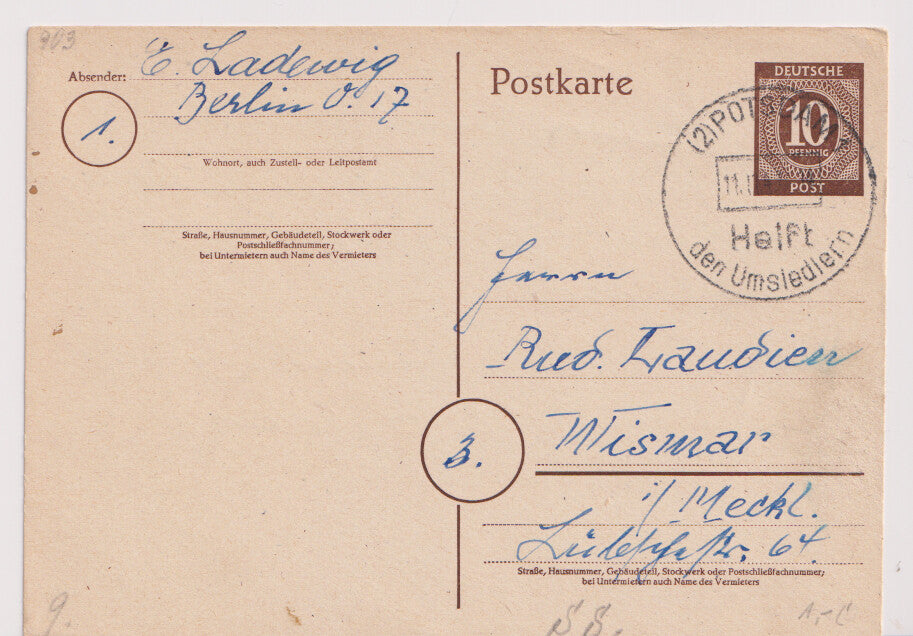 903
Absender: E. Ladewig
Berlin O. 17
1.
Wohnort, auch Zustell- oder Leitpostamt
Straße, Hausnummer, Gebäudeteil, Stockwerk oder
Postschließfachnummer;
bei Untermietern auch Name des Vermieters
Postkarte
DEUTSCHE
10
PFENNIG
POST
(2) POTSDAM
11.
Helft
den Umsiedlern
Herrn
Rud. Laudien
3.
Wismar
i/ Meckl.
Lübschestr. 64.
Straße, Hausnummer, Gebäudeteil, Stockwerk oder Postschließfachnummer;
bei Untermietern auch Name des Vermieters
9.